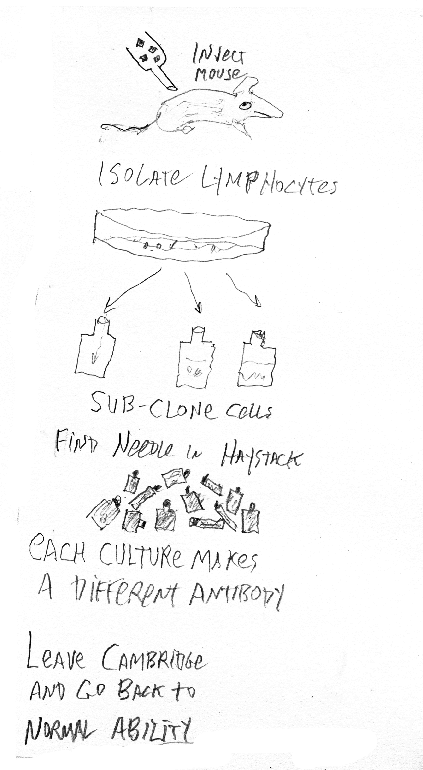 INJECT
MOUSE
ISOLATE LYMPHOCYTES
SUB-CLONE CELLS
FIND NEEDLE IN HAYSTACK
EACH CULTURE MAKES
A DIFFERENT ANTIBODY
LEAVE CAMBRIDGE
AND GO BACK TO
NORMAL ABILITY